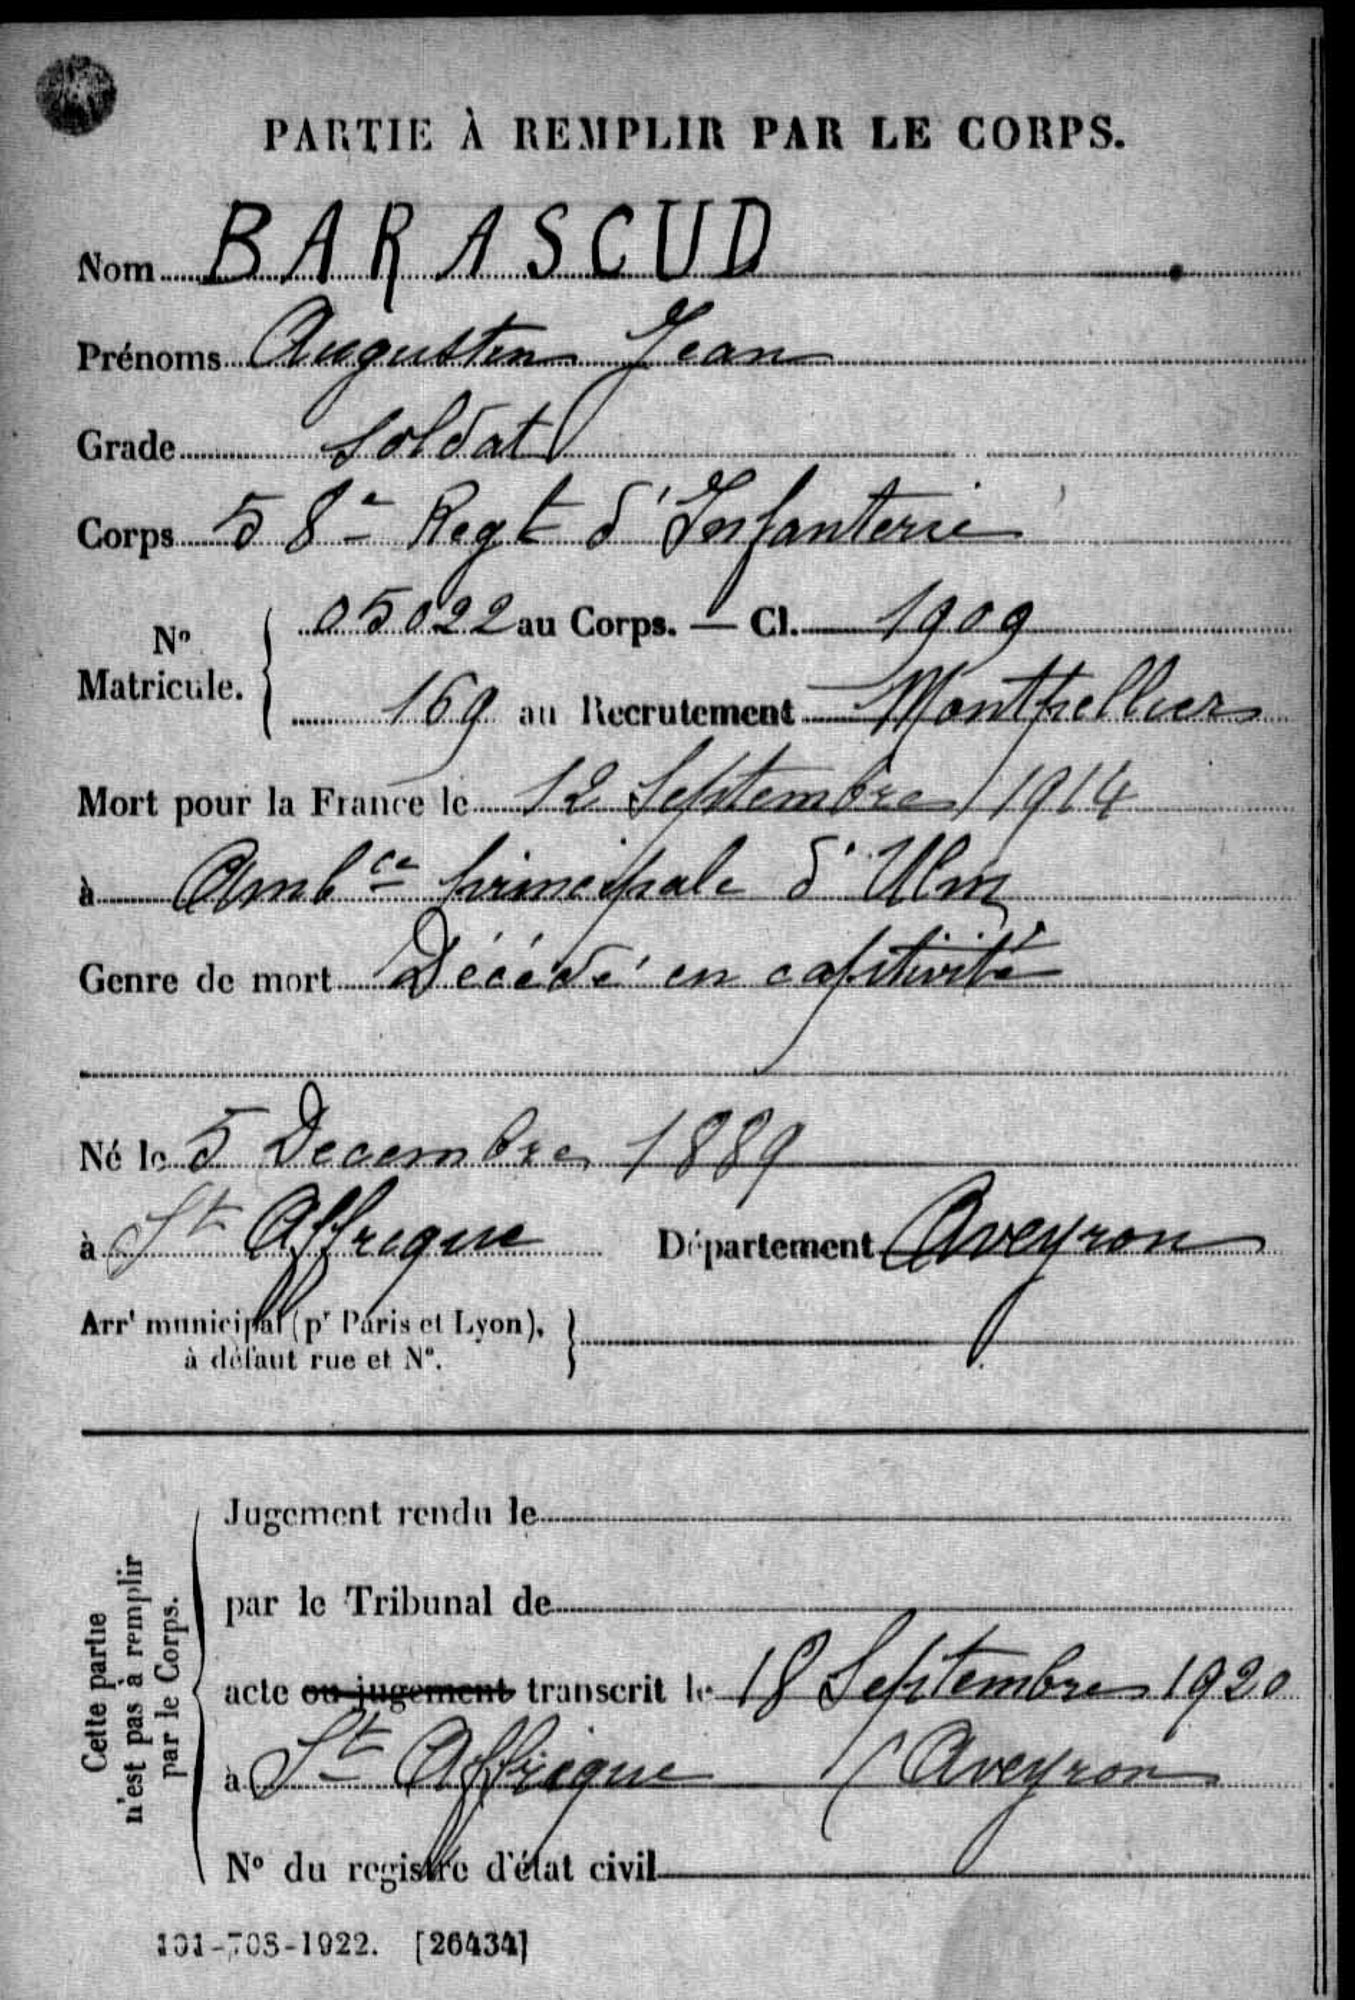 PARTIE À REMPLIR PAR LE CORPS.
Nom BARASCUD
Prénoms Augustin Jean
Grade Soldat
Corps 58e Regt d'Infanterie
No Matricule. 05022 au Corps. — Cl. 1909
169 au Recrutement Montpellier
Mort pour la France le 12 Septembre 1914
à Ambce principale d'Ulm
Genre de mort Décédé en captivité
Né le 5 Decembre 1889
à St Affrique Département Aveyron
Arrt municipal (pr Paris et Lyon),
à défaut rue et N°.
Cette partie
n'est pas à remplir
par le Corps.
Jugement rendu le
par le Tribunal de
acte ou jugement transcrit le 18 Septembre 1920
à St Affrique (Aveyron
N° du registre d'état civil
101-708-1922. [26434]